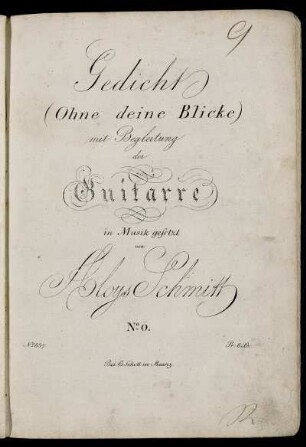 9
Gedicht
(Ohne deine Blicke)
mit Begleitung
der
Guitarre
in Musik gesetzt
von
Aloys Schmitt
No. 6.
Bei B. Schott in Mainz.